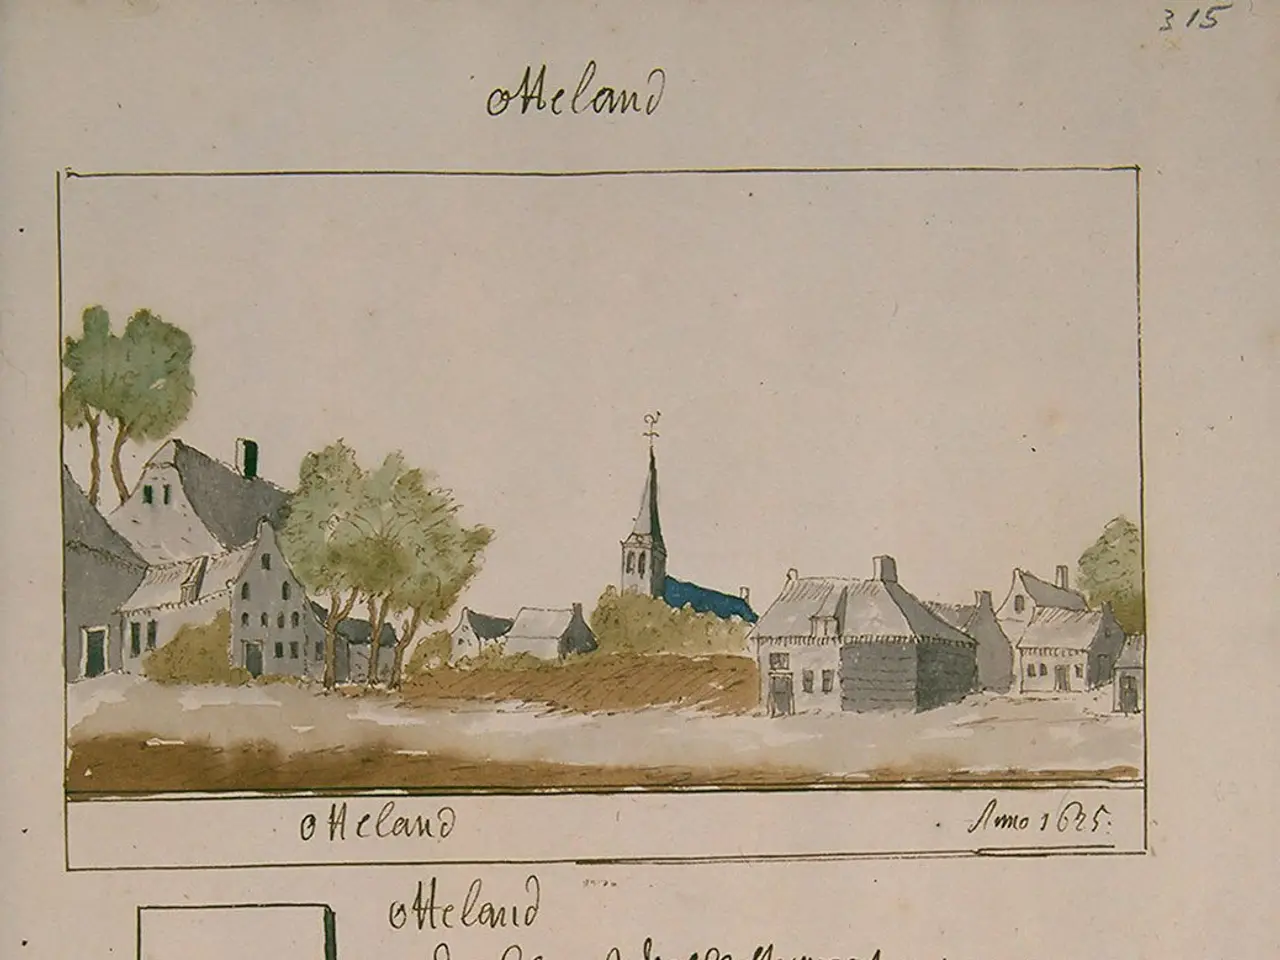 315
otteland
otteland
Anno 1625.
otteland